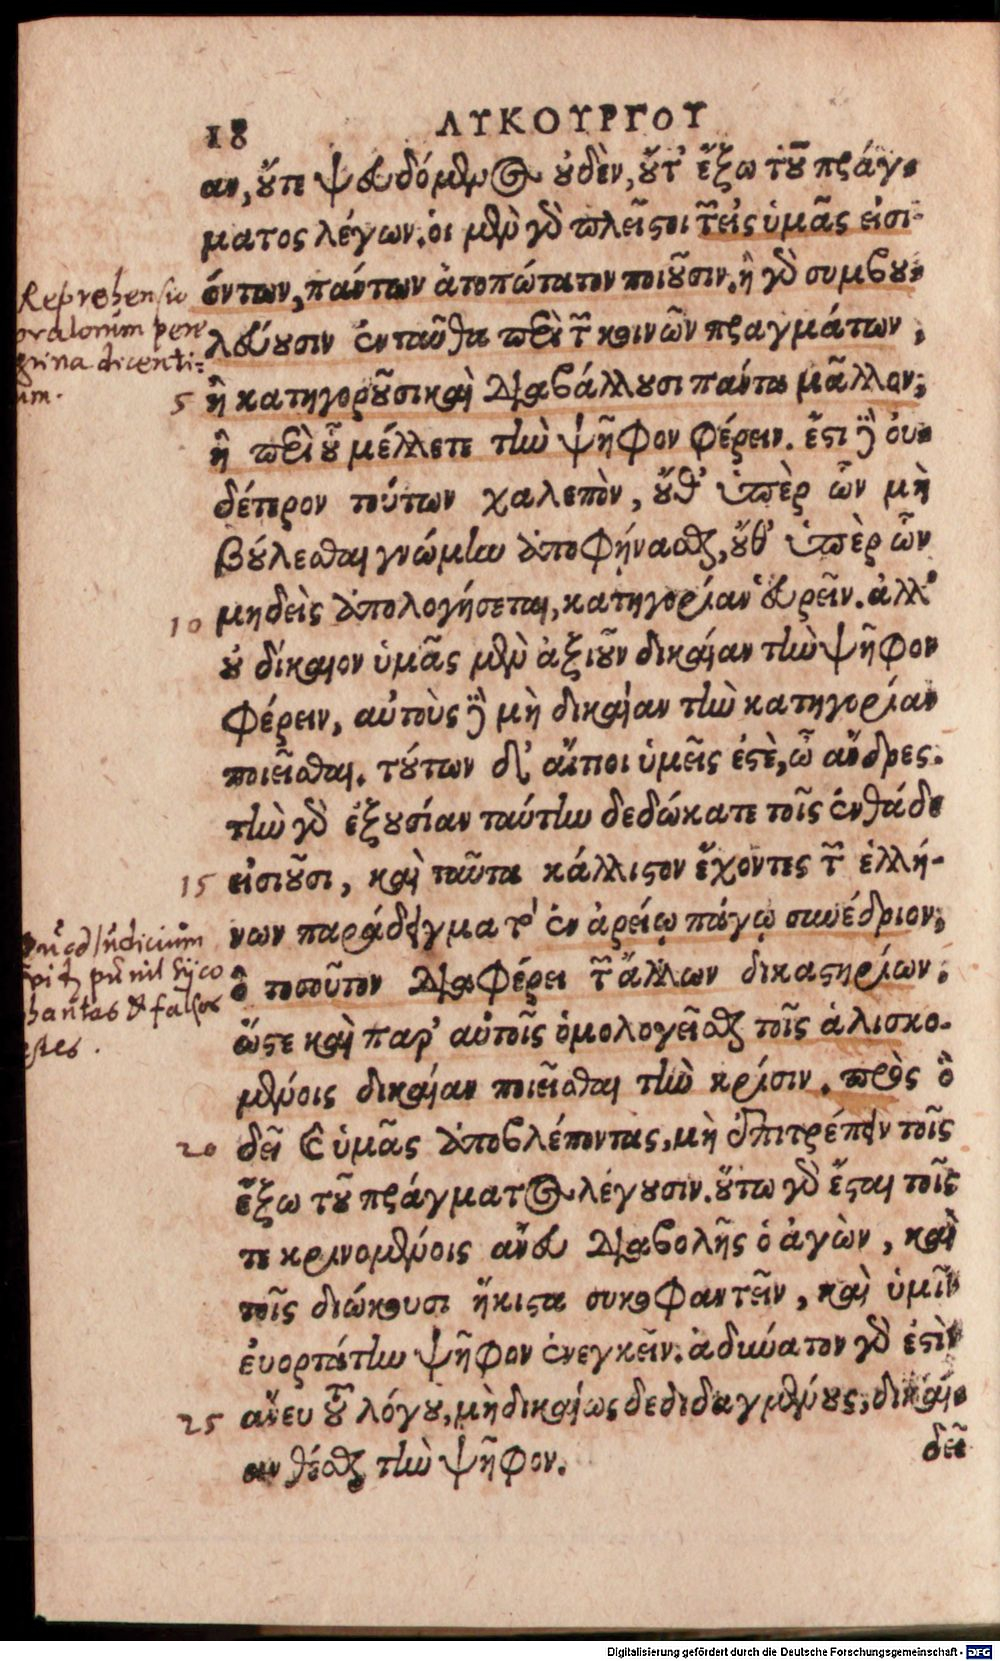 18 ΛΥΚΟΥΡΓΟΥ
αν, οὔτε ψευδόμενος οὐδὲν, οὔτ' ἔξω τοῦ πράγ-
ματος λέγων. οἱ μὲν γὰρ πλεῖστοι τῶν εἰς ὑμᾶς εἰσι-
όντων, πάντων ἀτοπώτατον ποιοῦσιν. ἢ γὰρ συμβου-
λεύουσιν ἐνταῦθα περὶ τῶν κοινῶν πραγμάτων,
5 ἢ κατηγοροῦσι καὶ διαβάλλουσι πάντα μᾶλλον,
ἢ περὶ οὗ μέλλετε τὴν ψῆφον φέρειν. ἔστι δὲ οὐ-
δέτερον τούτων χαλεπὸν, οὔθ' ὑπὲρ ὧν μὴ
βούλεσθαι γνώμην ἀποφήνασθαι, οὔθ' ὑπὲρ ὧν
μηδεὶς ἀπολογήσεται, κατηγορίαν εὑρεῖν. ἀλλ'
10 οὐ δίκαιον ὑμᾶς μὲν ἀξιοῦν δικαίαν τὴν ψῆφον
φέρειν, αὐτοὺς δὲ μὴ δικαίαν τὴν κατηγορίαν
ποιεῖσθαι. τούτων δ' αἴτιοι ὑμεῖς ἐστὲ, ὦ ἄνδρες.
τὴν γὰρ ἐξουσίαν ταύτην δεδώκατε τοῖς ἐνθάδε
15 εἰσιοῦσι, καὶ ταῦτα κάλλιστον ἔχοντες τῶν ἑλλή-
νων παράδειγμα τὸ ἐν ἀρείῳ πάγῳ συνέδριον,
ὃ τοσοῦτον διαφέρει τῶν ἄλλων δικαστηρίων,
ὥστε καὶ παρ' αὐτοῖς ὁμολογεῖσθαι τοῖς ἁλισκο-
μένοις δικαίαν ποιεῖσθαι τὴν κρίσιν. πρὸς ὃ
20 δεῖ καὶ ὑμᾶς ἀποβλέποντας, μὴ ἐπιτρέπειν τοῖς
ἔξω τοῦ πράγματος λέγουσιν. οὕτω γὰρ ἔσται τοῖς
τε κρινομένοις ἄνευ διαβολῆς ὁ ἀγὼν, καὶ
τοῖς διώκουσι ἥκιστα συκοφαντεῖν, καὶ ὑμῖν
εὐορκοτάτην ψῆφον ἐνεγκεῖν. ἀδύνατον γὰρ ἐστὶν
25 ἄνευ τοῦ λόγου, μὴ δικαίως δεδιδαγμένους, δικαί-
αν θέσθαι τὴν ψῆφον.
δεῖ
Reprehensio
oratorum pere
grina dicenti=
um.
Quod Judicium
punit syco
phantas & falsos
testes.
Digitalisierung gefördert durch die Deutsche Forschungsgemeinschaft - DFG